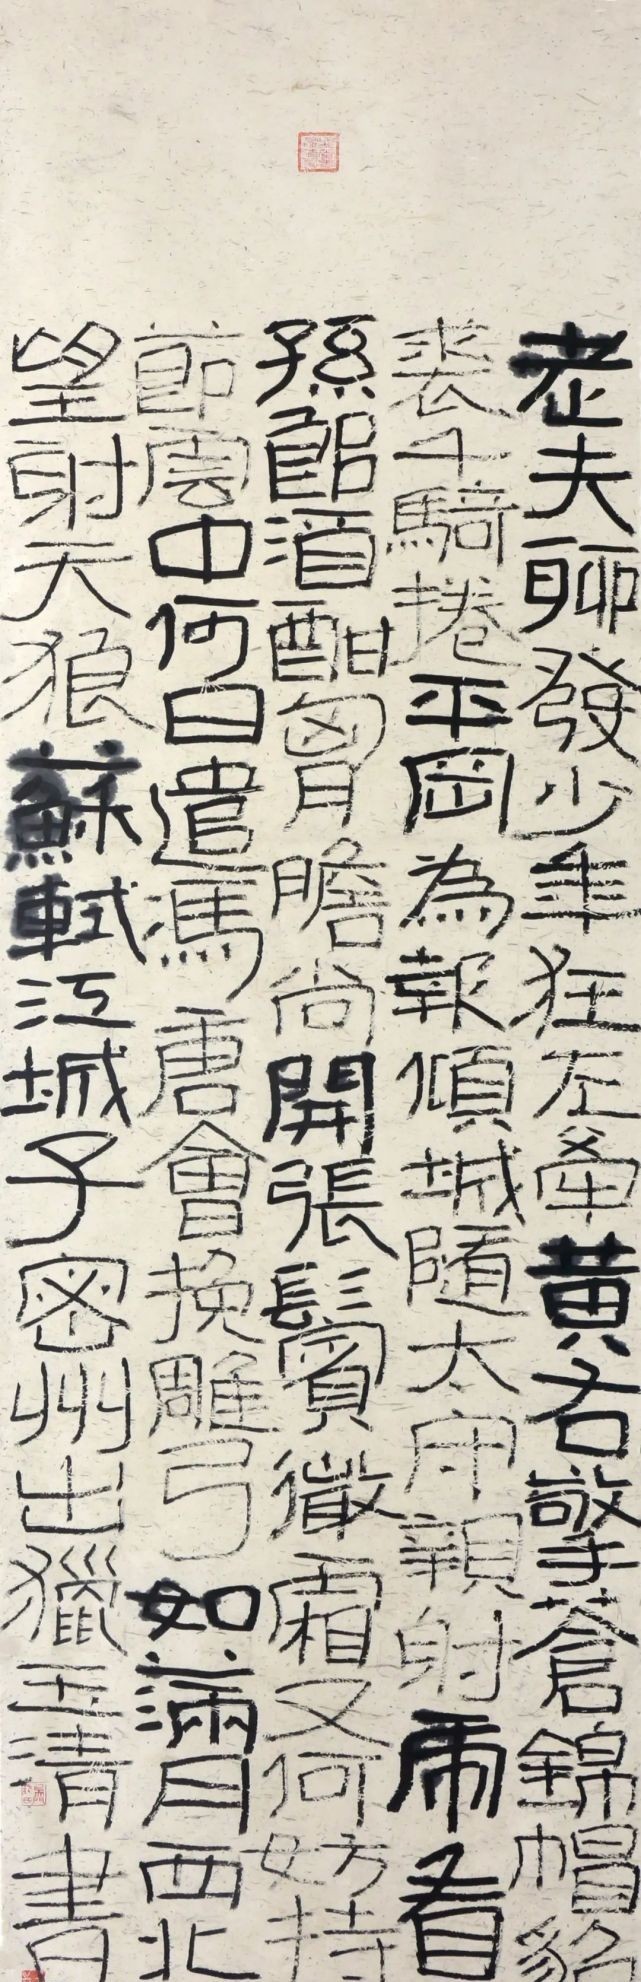 老夫聊發少年狂左牽黃右擎蒼錦帽貂
裘千騎捲平岡為報傾城隨太守親射虎看
孫郎酒酣胷膽尚開張鬢微霜又何妨持
節雲中何日遣馮唐會挽雕弓如滿月西北
望射天狼蘇軾江城子密州出獵玉清書